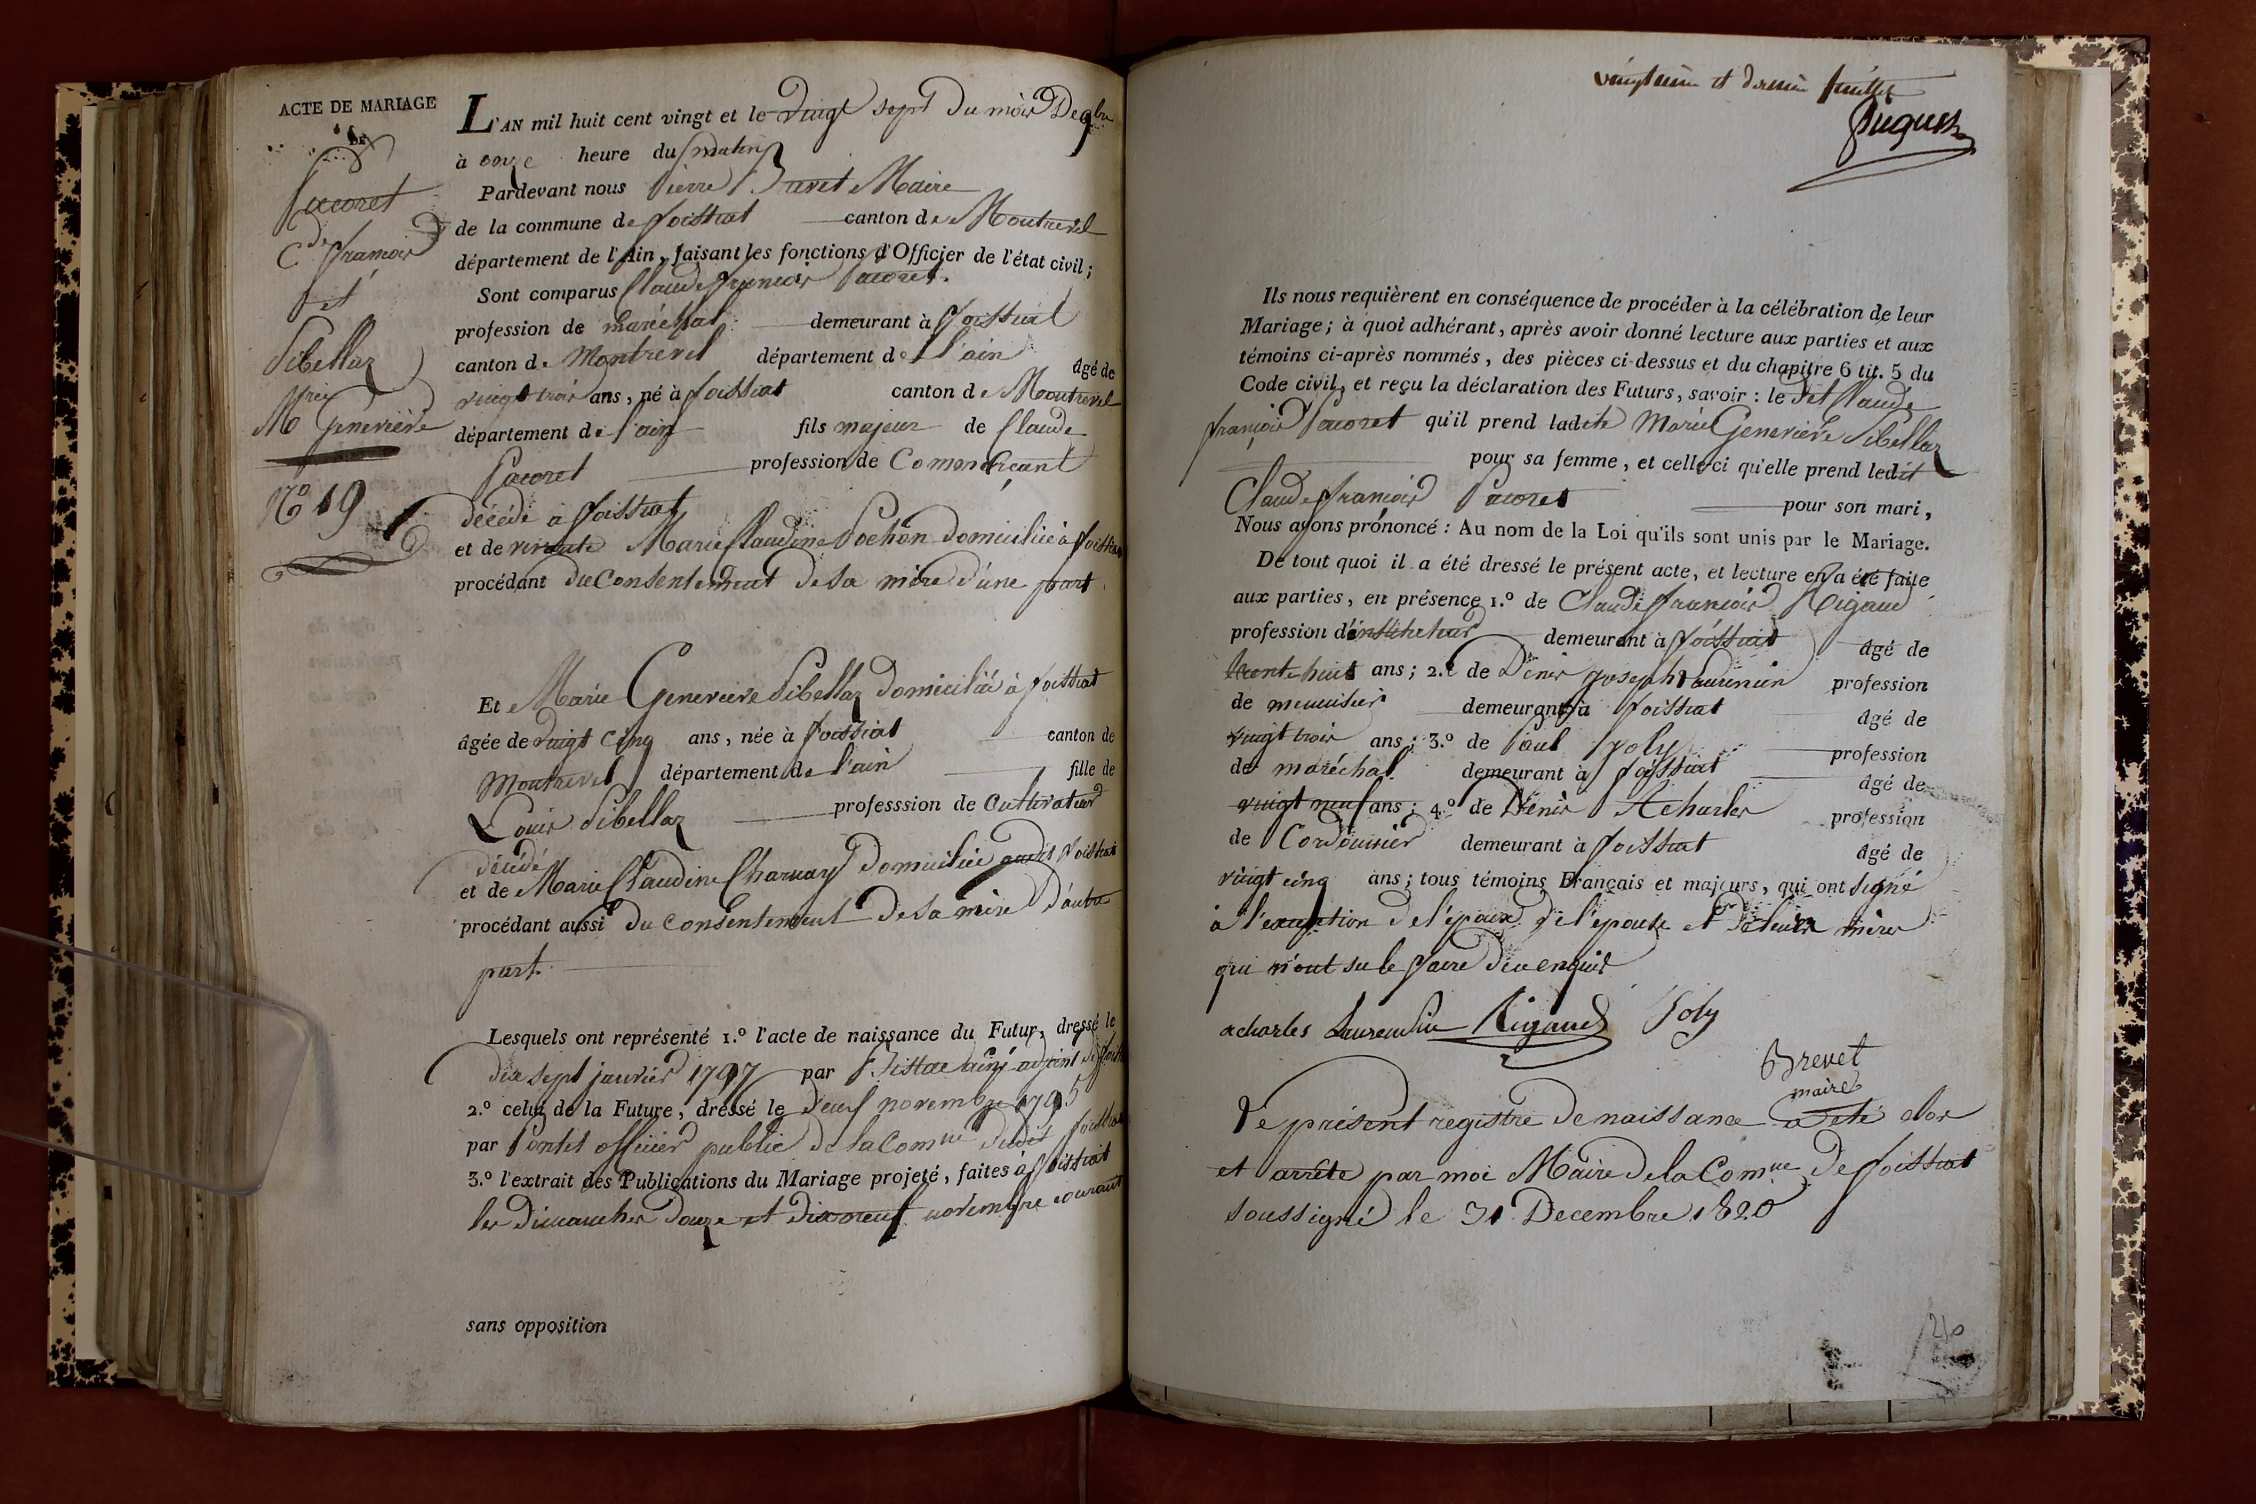 ACTE DE MARIAGE
DE
Pacoret
Cde françois
et
Sibellas
Mrie Geneviève
No 19
L'AN mil huit cent vingt et le vingt sept du mois De 9bre
à onze heure du matin
Pardevant nous Pierre Brevet Maire
de la commune de foissiat canton de Montrevel
département de l'Ain, faisant les fonctions d'Officier de l'état civil;
Sont comparus Claude françois Pacoret.
profession de maréchal demeurant à foissiat
canton de Montrevel département de l'ain âgé de
vingt trois ans, né à foissiat canton de Montrevel
département de l'ain fils majeur de Claude
Pacoret profession de Commerçant
décédé à foissiat
et de Marie Claudine Pochon domiciliée à foissiat
procédant du Consentement de sa mère d'une part
Et Marie Geneviève Sibellas domiciliée à foissiat
âgée de vingt cinq ans, née à foissiat canton de
Montrevel département de l'ain fille de
Louis Sibellas professsion de Cultivateur
décédé
et de Marie Claudine Charnay domiciliée foissiat
procédant aussi du consentement de sa mère d'autre
part.
Lesquels ont représenté 1.º l'acte de naissance du Futur, dressé le
dix sept janvier 1797 par adjoint de
2.º celui de la Future, dressé le neuf novembre 1795
par Pontet officier public de la Comne dudit foissiat
3.º l'extrait des Publications du Mariage projeté, faites à foissiat
les dimanches douze et dix neuf novembre courant
sans opposition
vingtième et dernier feuillet
Ils nous requièrent en conséquence de procéder à la célébration de leur
Mariage; à quoi adhérant, après avoir donné lecture aux parties et aux
témoins ci-après nommés, des pièces ci-dessus et du chapitre 6 tit. 5 du
Code civil, et reçu la déclaration des Futurs, savoir: le dit Claude
françois Pacoret qu'il prend ladite Marie Geneviève Sibellas
pour sa femme, et celle-ci qu'elle prend ledit
Claude françois Pacoret pour son mari,
Nous avons prononcé: Au nom de la Loi qu'ils sont unis par le Mariage.
De tout quoi il a été dressé le présent acte, et lecture en a été faite
aux parties, en présence 1.º de Claude françois Rigaud
profession d'instituteur demeurant à foissiat âgé de
trente huit ans; 2.º de Denis joseph Laurencin profession
de menuisier demeurant à foissiat âgé de
vingt trois ans; 3.º de Paul joly profession
de maréchal demeurant à foissiat âgé de
vingt neuf ans; 4.º de Denis Acharles profession
de Cordonnier demeurant à foissiat âgé de
vingt cinq ans; tous témoins Français et majeurs, qui ont signé
à l'exception de l'époux de l'épouse et de leurs mères
qui n'ont su le faire de ce enquis
acharles Laurencin Rigaud Joly
Brevet
maire
Le présent registre de naissance a été clos
et arrêté par moi Maire de la Comne de foissiat
soussigné le 31 Decembre 1820
210